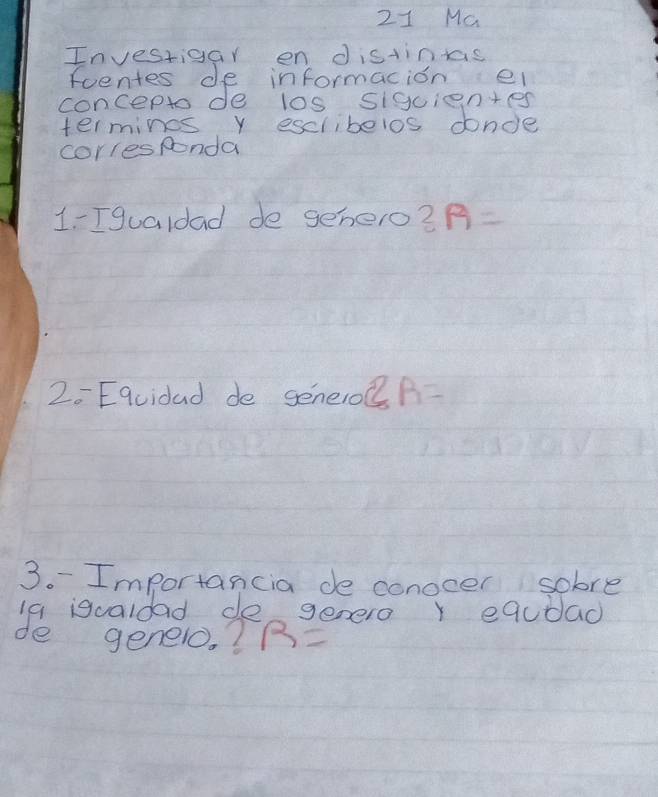 21 Ma
Investigar en distintas
fuentes de información el
concepto de los siguientes
terminos y escribelos donde
corresponda
1.- Igualdad de género? R=
2.- Equidad de género? R=
3.- Importancia de conocer sobre
la igualdad de genero y equidad
de genero.? R=